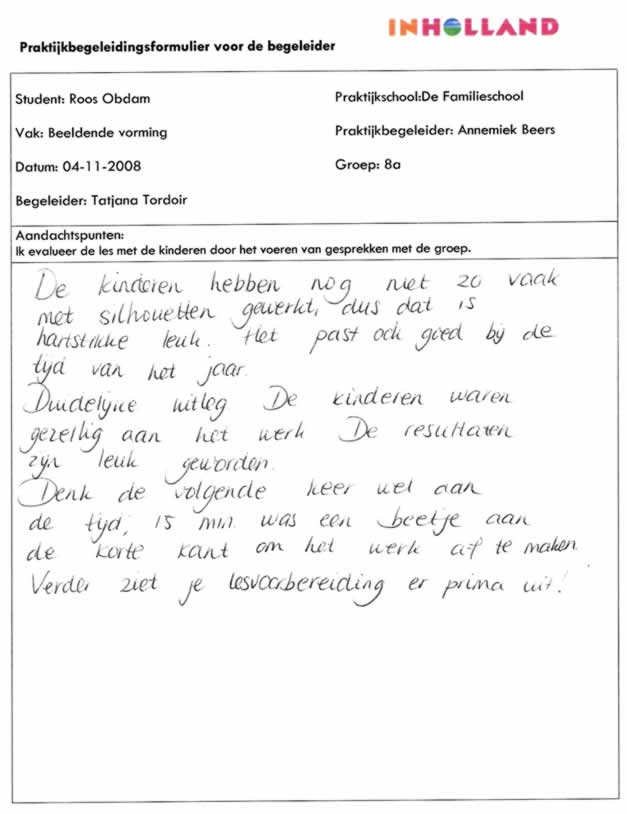 INHOLLAND
Praktijkbegeleidingsformulier voor de begeleider
Student: Roos Obdam
Praktijkschool:De Familieschool
Vak: Beeldende vorming
Praktijkbegeleider: Annemiek Beers
Datum: 04-11-2008
Groep: 8a
Begeleider: Tatjana Tordoir
Aandachtspunten:
Ik evalueer de les met de kinderen door het voeren van gesprekken met de groep.
De kinderen hebben nog niet zo vaak
met silhouetten gewerkt, dus dat is
hartstikke leuk. Het past ook goed bij de
tijd van het jaar.
Duidelijke uitleg De kinderen waren
gezellig aan het werk De resultaten
zijn leuk geworden.
Denk de volgende keer wel aan
de tijd, 15 min. was een beetje aan
de korte kant om het werk af te maken
Verder ziet je lesvoorbereiding er prima uit!